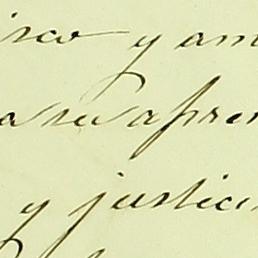 isco y am
a su apren
y justicia